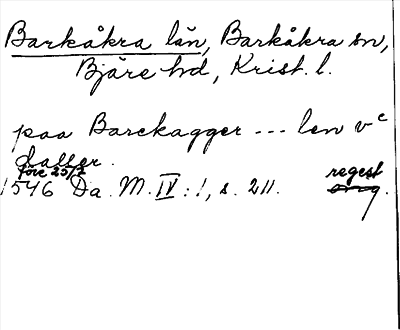 Barkåkra län, Barkåkra sn,
Bjäre hd, Krist. l.
paa Barckagger --- len v c
daller.
före 25/7
regest
1546 Da. M. IV:1, s. 211. orig.